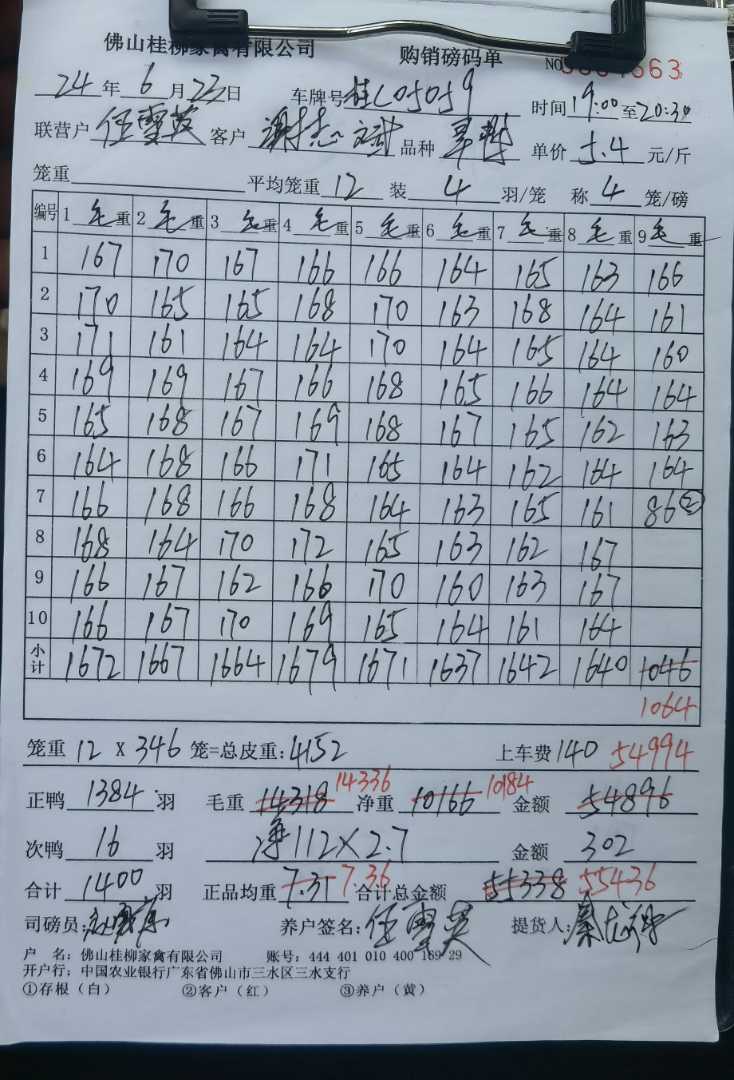 佛山桂柳家禽有限公司 购销磅码单 NO 663
24年6月23日 车牌号 桂L05059 时间19:00至20:30
联营户 伍雪英 客户 谢志斌 品种 单价 5.4 元/斤
笼重 平均笼重 12 装 4 羽/笼 称 4 笼/磅
编号 1毛重 2毛重 3毛重 4毛重 5毛重 6毛重 7毛重 8毛重 9毛重
1 167 170 167 166 166 164 165 163 166
2 170 165 165 168 170 163 168 164 161
3 171 161 164 164 170 164 165 164 160
4 169 169 167 166 168 165 166 164 164
5 165 168 167 169 168 167 165 162 163
6 164 168 166 171 165 164 162 164 164
7 166 168 166 168 164 163 165 161 86②
8 168 164 170 172 165 163 162 167
9 166 167 162 166 170 160 163 167
10 166 167 170 169 165 164 161 164
小计 1672 1667 1664 1679 1671 1637 1642 1640 1046
1064
笼重 12 X 346 笼=总皮重:4152 上车费 140 54994
正鸭 1384 羽 毛重 14318 14336 净重 10166 10184 金额 54896
次鸭 16 羽 净112×2.7 金额 302
合计 1400 羽 正品均重 7.31 7.36 合计总金额 55338 55436
司磅员: 养户签名: 伍雪英 提货人:
户 名:佛山桂柳家禽有限公司 账号:444 401 010 400 169 29
开户行:中国农业银行广东省佛山市三水区三水支行
①存根(白) ②客户(红) ③养户(黄)